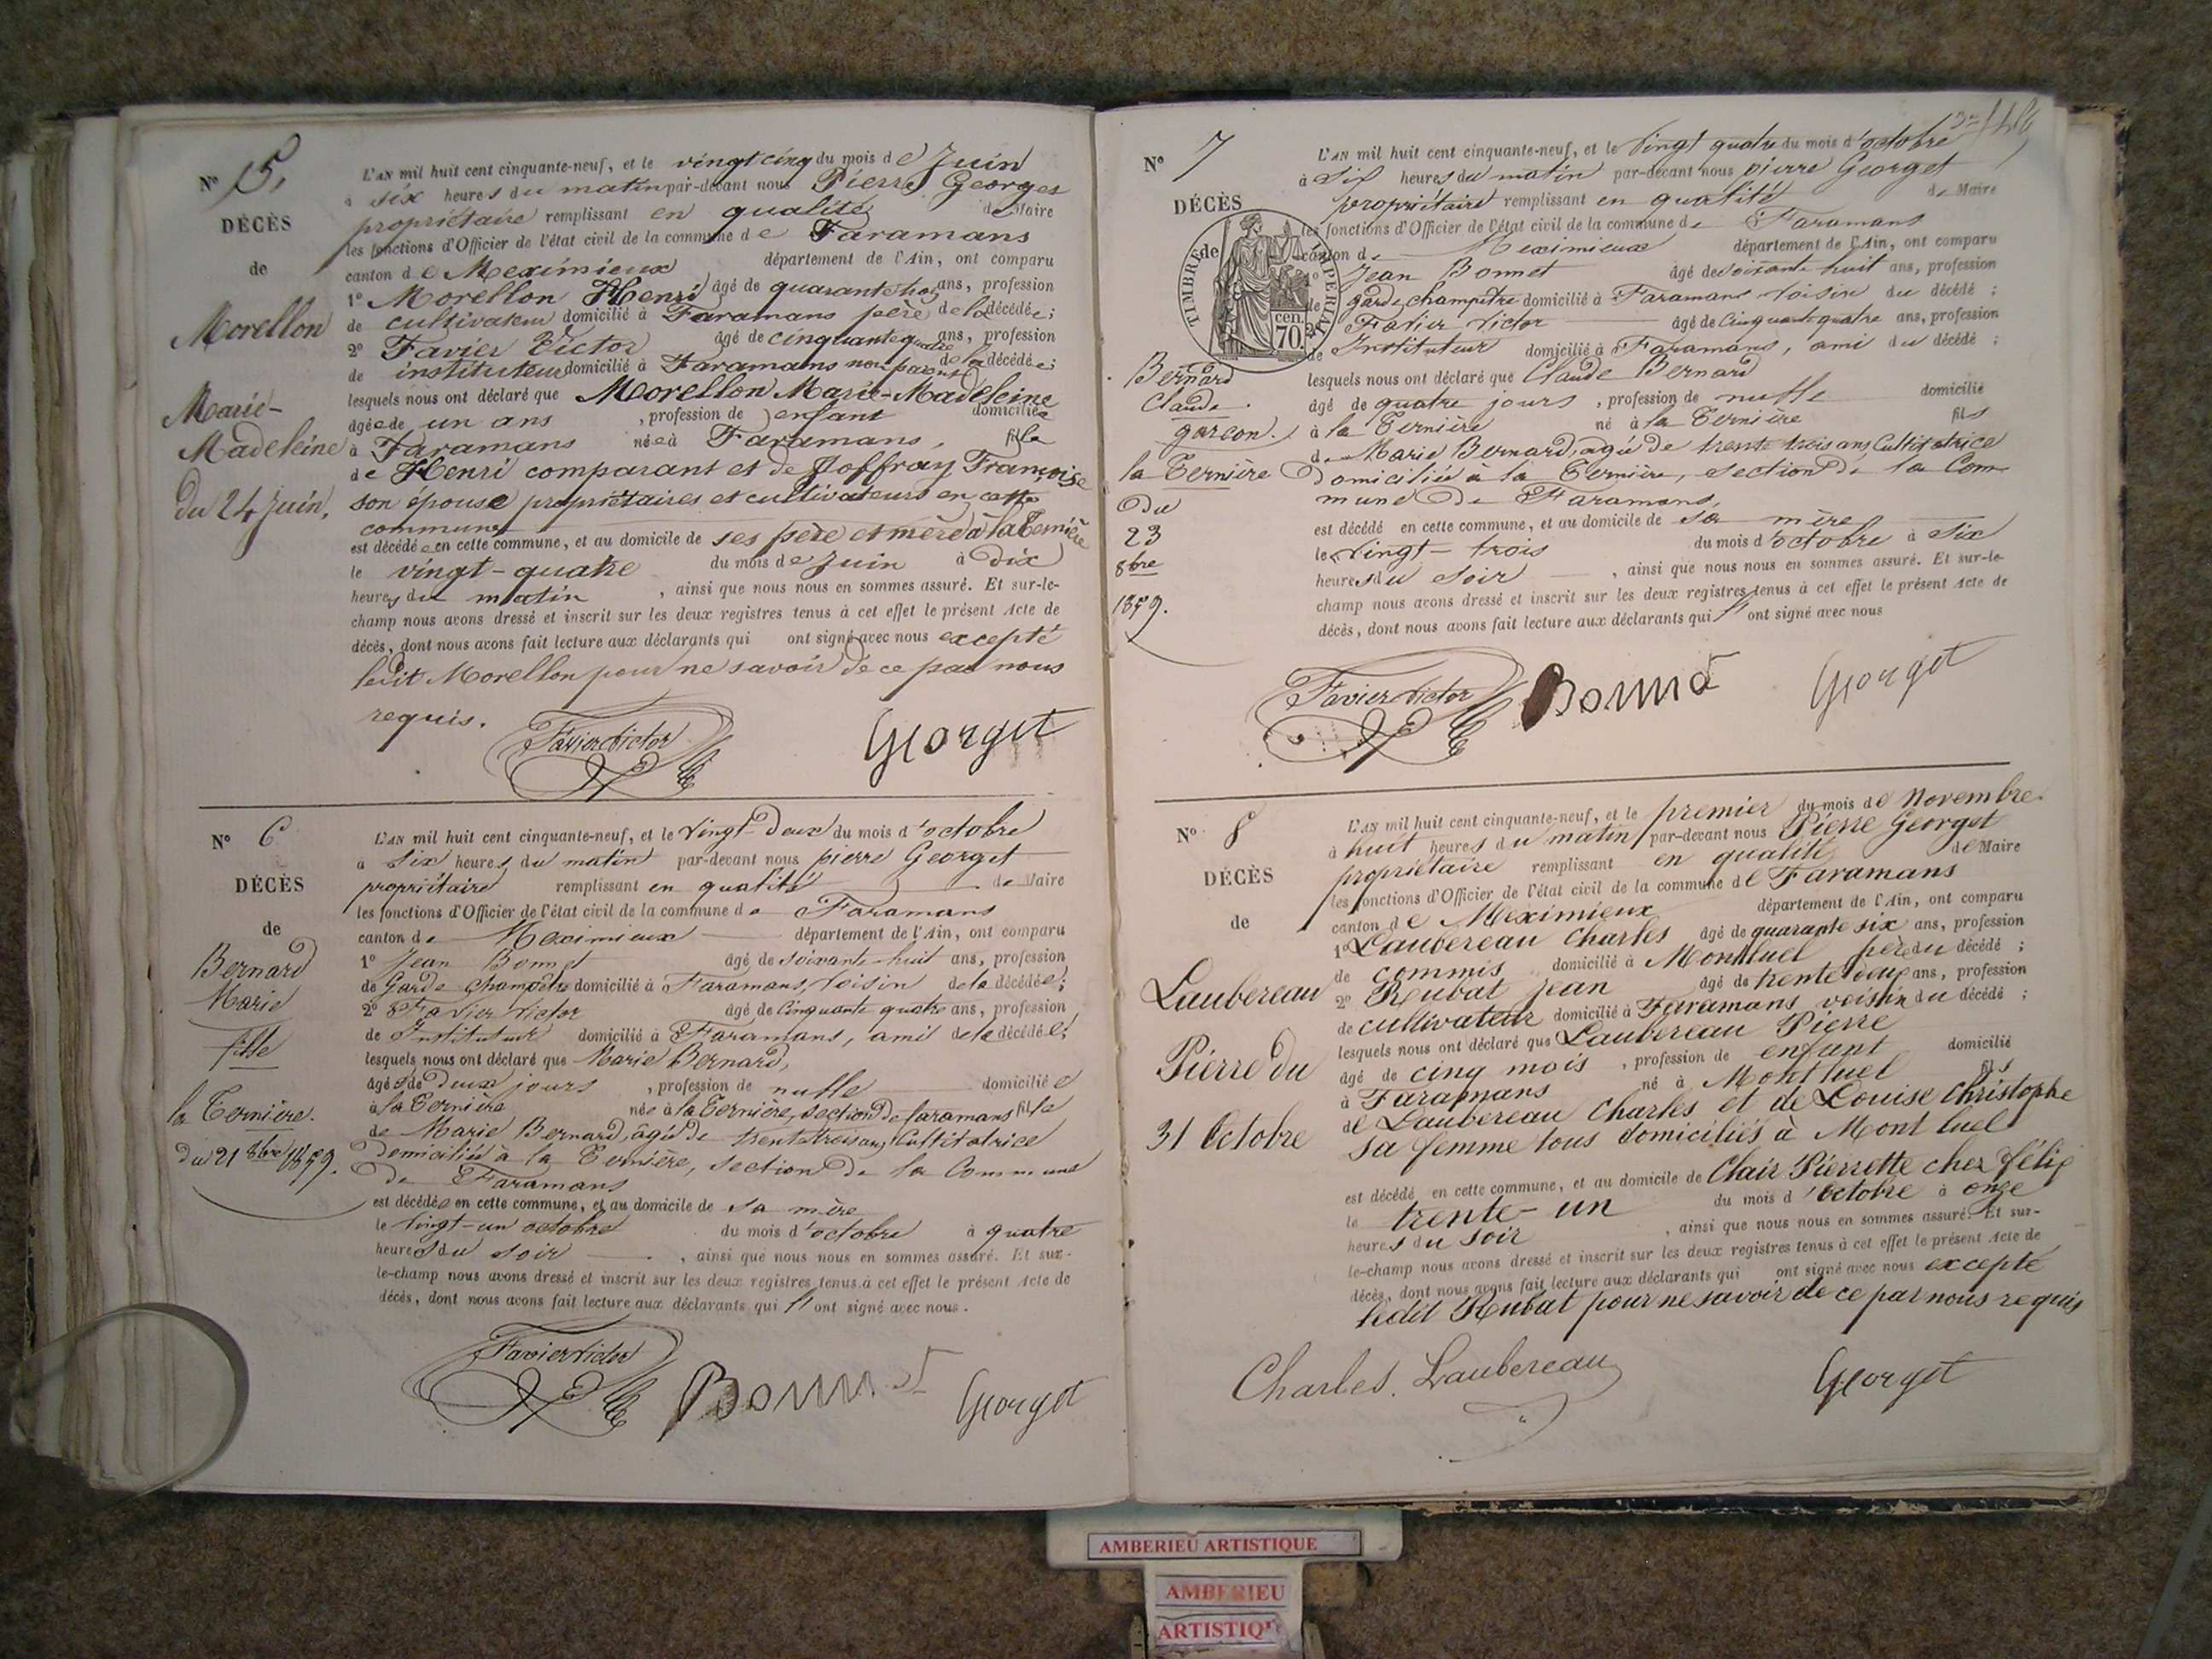 N° 5,
DÉCÈS
de
Morellon
Marie-
Madeleine
du 24 juin.
L'AN mil huit cent cinquante-neuf, et le vingt cinq du mois de Juin
à six heures du matin par-devant nous Pierre Georget
propriétaire remplissant en qualité de Maire
les fonctions d'Officier de l'état civil de la commune de Faramans
canton de Meximieux département de l'Ain, ont comparu
1° Morellon Henri âgé de quarante trois ans, profession
de cultivateur domicilié à Faramans père de la décédée;
2° Favier Victor âgé de cinquante quatre ans, profession
de instituteur domicilié à Faramans non parent de la décédée;
lesquels nous ont déclaré que Morellon Marie-Madeleine
âgée de un ans, profession de enfant domiciliée
à Faramans née à Faramans, fille
de Henri comparant et de Joffray Françoise
son épouse propriétaires et cultivateurs en cette
commune
est décédée en cette commune, et au domicile de ses père et mère à la Ternière
le vingt-quatre du mois de Juin à dix
heures du matin, ainsi que nous nous en sommes assuré. Et sur-le-
champ nous avons dressé et inscrit sur les deux registres tenus à cet effet le présent Acte de
décès, dont nous avons fait lecture aux déclarants qui ont signé avec nous excepté
ledit Morellon pour ne savoir de ce par nous
requis.
Favier Victor Georget
N° 6
DÉCÈS
de
Bernard
Marie
fille
la Ternière.
du 21 8bre 1859.
L'AN mil huit cent cinquante-neuf, et le vingt-deux du mois d'octobre
à six heures du matin par-devant nous pierre Georget
propriétaire remplissant en qualité de Maire
les fonctions d'Officier de l'état civil de la commune de Faramans
canton de Meximieux département de l'Ain, ont comparu
1° Jean Bonnet âgé de soixante-huit ans, profession
de Garde champêtre domicilié à Faramans, voisin de la décédée;
2° Favier Victor âgé de Cinquante quatre ans, profession
de Instituteur domicilié à Faramans, ami de la décédée;
lesquels nous ont déclaré que Marie Bernard,
âgée de deux jours, profession de nulle domiciliée
à la Ternière née à la Ternière, section de faramans fille
de Marie Bernard, âgée de trente trois ans, Cultivatrice
Domiciliée à la Ternière, section de la Commune
de Faramans
est décédée en cette commune, et au domicile de sa mère
le vingt-un octobre du mois d'octobre à quatre
heures du soir, ainsi que nous nous en sommes assuré. Et sur-
le-champ nous avons dressé et inscrit sur les deux registres tenus à cet effet le présent Acte de
décès, dont nous avons fait lecture aux déclarants qui ont signé avec nous.
Favier Victor Bonnet Georget
N° 7
DÉCÈS
de
TIMBRE IMPERIAL
70 cen.
Bernard
Claude
garcon.
la Ternière
du
23
8bre
1859.
L'AN mil huit cent cinquante-neuf, et le vingt quatre du mois d'octobre
à six heures du matin par-devant nous pierre Georget
propriétaire remplissant en qualité de Maire
les fonctions d'Officier de l'état civil de la commune de Faramans
canton de Meximieux département de l'Ain, ont comparu
1° Jean Bonnet âgé de soixante huit ans, profession
de garde champêtre domicilié à Faramans voisin du décédé;
2° Favier Victor âgé de Cinquante quatre ans, profession
de Instituteur domicilié à Faramans, ami du décédé;
lesquels nous ont déclaré que Claude Bernard
âgé de quatre jours, profession de nulle domicilié
à la Ternière né à la Ternière fils
de Marie Bernard, âgée de trente trois ans, Cultivatrice
Domiciliée à la Ternière, section de la Com-
mune de Faramans,
est décédé en cette commune, et au domicile de sa mère
le vingt-trois du mois d'octobre à six
heures du soir, ainsi que nous nous en sommes assuré. Et sur-le-
champ nous avons dressé et inscrit sur les deux registres tenus à cet effet le présent Acte de
décès, dont nous avons fait lecture aux déclarants qui ont signé avec nous
Favier Victor Bonnet Georget
N° 8
DÉCÈS
de
Laubereau
Pierre du
31 Octobre
L'AN mil huit cent cinquante-neuf, et le premier du mois de Novembre
à huit heures du matin par-devant nous Pierre Georget
propriétaire remplissant en qualité de Maire
les fonctions d'Officier de l'état civil de la commune de Faramans
canton de Meximieux département de l'Ain, ont comparu
1° Laubereau Charles âgé de quarante six ans, profession
de commis domicilié à Montluel père du décédé;
2° Rubat jean âgé de trente deux ans, profession
de cultivateur domicilié à Faramans voisin du décédé;
lesquels nous ont déclaré que Laubereau Pierre
âgé de cinq mois, profession de enfant domicilié
à Faramans né à Montluel fils
de Laubereau Charles et de Louise Christophe
sa femme tous domiciliés à Mont luel
est décédé en cette commune, et au domicile de Clair Pierrette chez félix
le trente-un du mois d'Octobre à onze
heures du soir, ainsi que nous nous en sommes assuré. Et sur-
le-champ nous avons dressé et inscrit sur les deux registres tenus à cet effet le présent Acte de
décès, dont nous avons fait lecture aux déclarants qui ont signé avec nous excepté
ledit Rubat pour ne savoir de ce par nous requis
Charles. Laubereau Georget
AMBERIEU ARTISTIQUE
AMBERIEU
ARTISTIQU